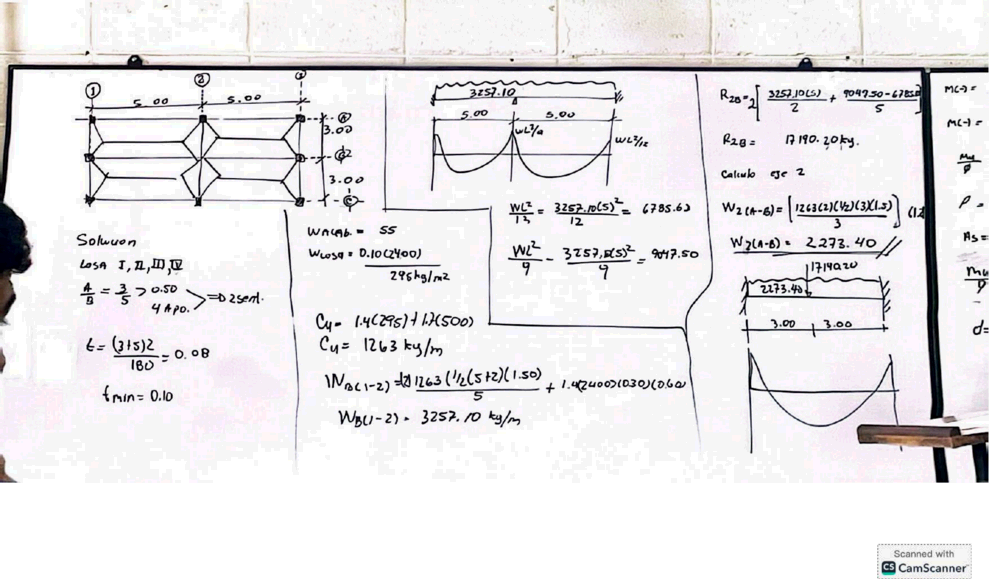 1
2
5.00
5.00
3.00
3.00
Solucion
Losa I, II, III, IV
A/B = 3/5 > 0.50
4 Apo.
=> 2 sent.
t = (3+5)2/180 = 0.08
t min = 0.10
W Acab. = 55
W Losa = 0.10(2400)
295 kg/m2
Cu = 1.4(295) + 1.7(500)
Cu = 1263 kg/m
1263 (1/2(5+2)(1.50)/5 + 1.4(2400)(0.30)(0.60)
WB(1-2) = 3257.10 kg/m
3257.10
5.00
5.00
WL²/9
WL²/12
= 3257.10(5)²/12 = 6785.63
WL²/9
9047.50
R2B = 2[3257.10(5)/2 +
R2B = 17190.20 kg.
Calculo eje 2
W2(A-B) = [1263(2)(1/2)(3)(1.5)/3]
2273.40
17190.20
2273.40
3.00
3.00
M(-) =
M(-) =
Mu/φ
ρ =
As =
d=
Scanned with
CS CamScanner